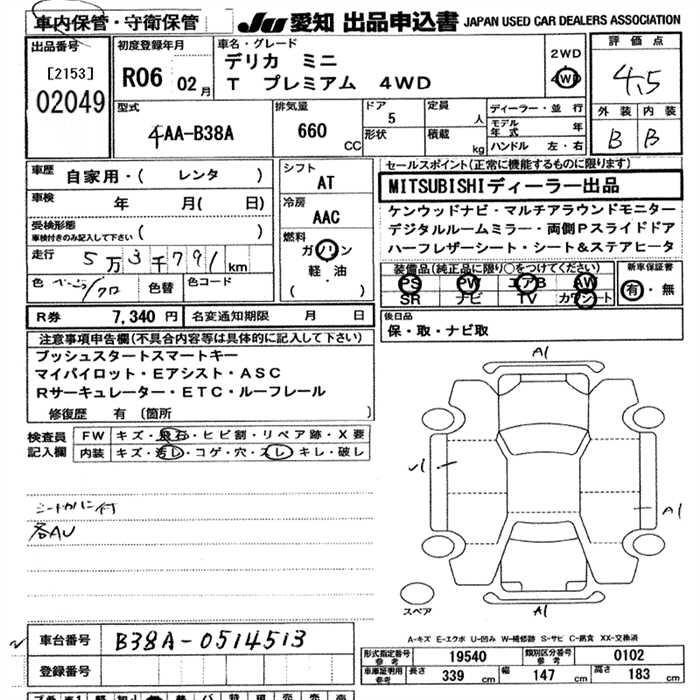 車内保管・守衛保管
JU 愛知 出品申込書 JAPAN USED CAR DEALERS ASSOCIATION
出品番号
[2153]
02049
初度登録年月
R06 02月
車名・グレード
デリカ ミニ
T プレミアム 4WD
2WD
4WD
評価点
4.5
外装 内装
B B
型式
4AA-B38A
排気量
660 CC
ドア
5
形状
定員
人
積載
kg
ディーラー・並行
モデル年式 年
ハンドル 左・右
車歴 自家用・( レンタ )
車検 年 月( 日)
受検形態
車検付きのみ記入して下さい ( )
走行 5万3千791km
色 色替 色コード
シフト
AT
冷房
AAC
燃料
ガソリン
軽・油
( )
セールスポイント(正常に機能するものに限ります)
MITSUBISHIディーラー出品
ケンウッドナビ・マルチアラウンドモニター
デジタルルームミラー・両側Pスライドドア
ハーフレザーシート・シート&ステアヒータ
装備品(純正品に限り○をつけてください)
PS PW エアB AW
SR ナビ TV カワシート
新車保証書
有・無
R券 7,340円 名変通知期限 月 日
後日品
保・取・ナビ取
注意事項申告欄(不具合内容等は具体的に記入して下さい)
プッシュスタートスマートキー
マイパイロット・Eアシスト・ASC
Rサーキュレーター・ETC・ルーフレール
修復歴 有 (箇所 )
検査員記入欄
FW キズ・飛石・ヒビ割・リペア跡・X要
内装 キズ・汚レ・コゲ・穴・スレ・キレ・破レ
シートカバー付
各AU
A1
A1
A1
スペア
A-キズ E-エクボ U-凹み W-補修跡 S-サビ C-腐食 XX-交換済
車台番号 B38A-0514513
登録番号
形式指定番号 参考 19540 類別区分番号 参考 0102
車庫証明用 参考 長さ 339 cm 幅 147 cm 高さ 183 cm